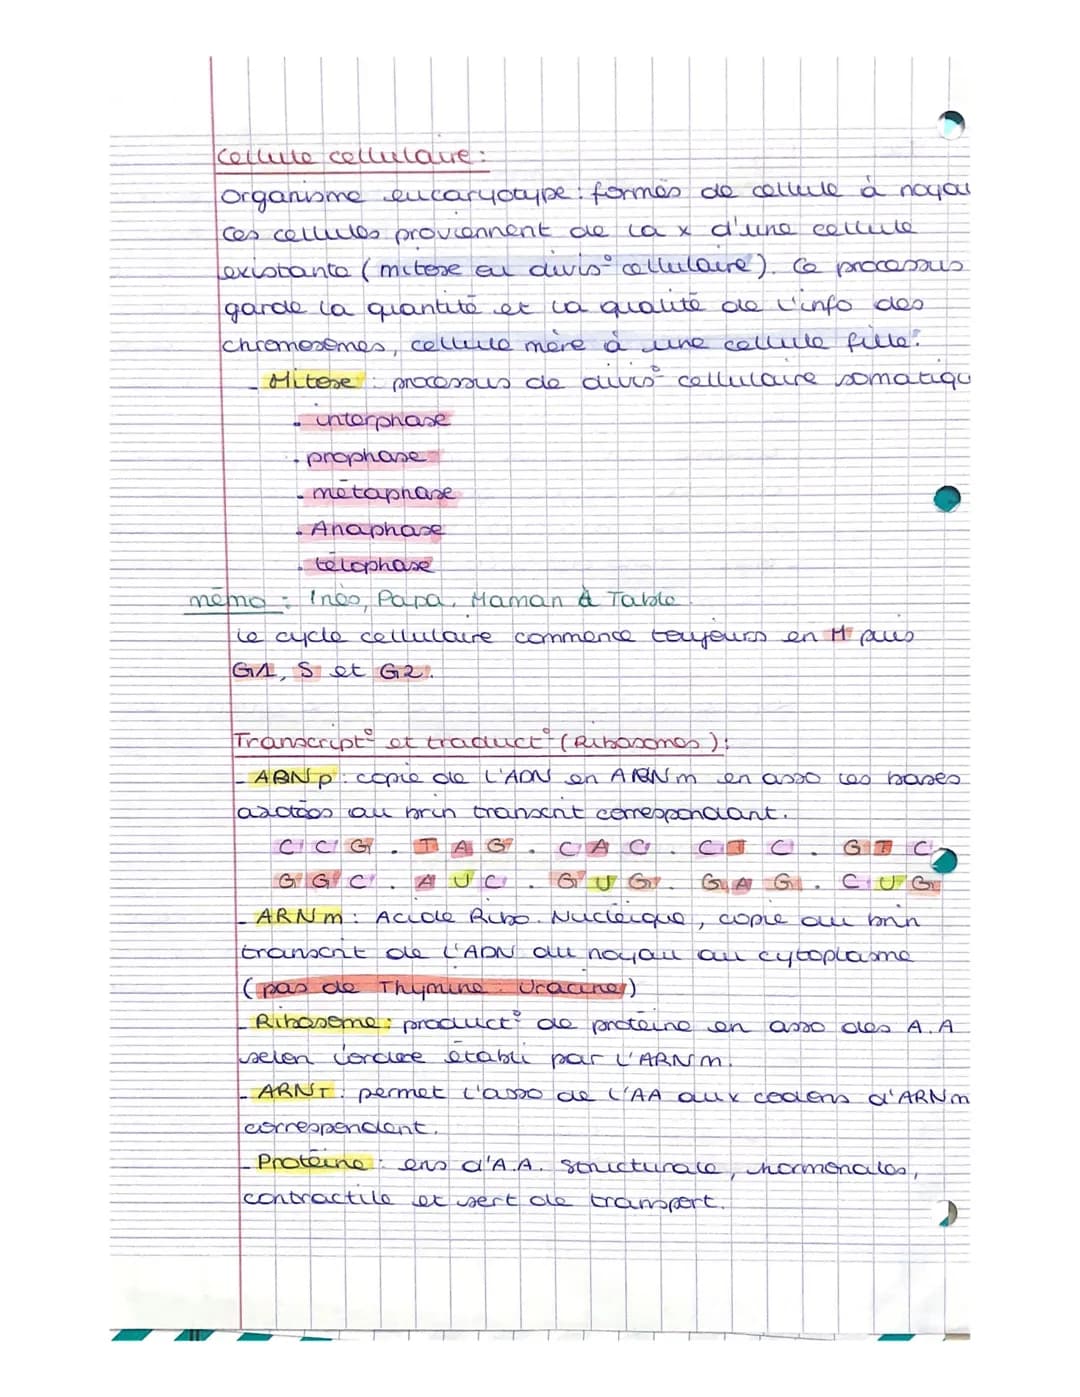 Cellule cellulaire :
Organisme eucaryotype : formés de cellule à noyau
Ces cellules proviennent de la x d'une cellule
existante (mitose ou divis° cellulaire). Ce processus
garde la quantité et la qualité de l'info des
chromosomes, cellule mère à une cellule fille.
- Mitose : processus de divis° cellulaire somatiqu
. interphase
. prophase
. métaphase
. Anaphase
. télophase
mémo : Inès, Papa, Maman à Table.
Le cycle cellulaire commence toujours en M puis
G1, S et G2.
Transcript° et traduct° (Ribosomes) :
- ARNp : copie de l'ADN en ARNm en asso les bases
azotées au brin transcrit correspondant.
C C G . T A G . C A C . C T C . G T C
G G C . A U C . G U G . G A G . C U G
- ARNm : Acide Ribo. Nucléique, copie du brin
transcrit de l'ADN du noyau au cytoplasme
(pas de Thymine : Uracine)
- Ribosome : product° de protéine en asso des A.A
selon l'ordre établi par l'ARNm.
- ARNT : permet l'asso de l'AA aux codons d'ARNm
correspondant.
- Protéine : ens d'A.A. structurale, hormonales,
contractile et sert de transport.